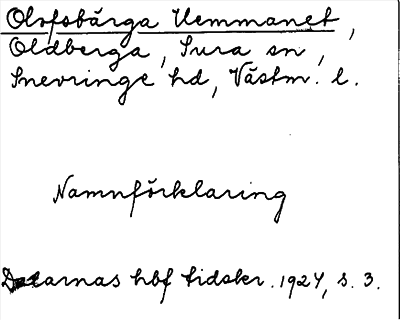 Olofsbärga Hemmanet,
Oldberga, Sura sn,
Snevringe hd, Västm. l.
Namnförklaring
Dalarnas hbf tidskr. 1927, s. 3.